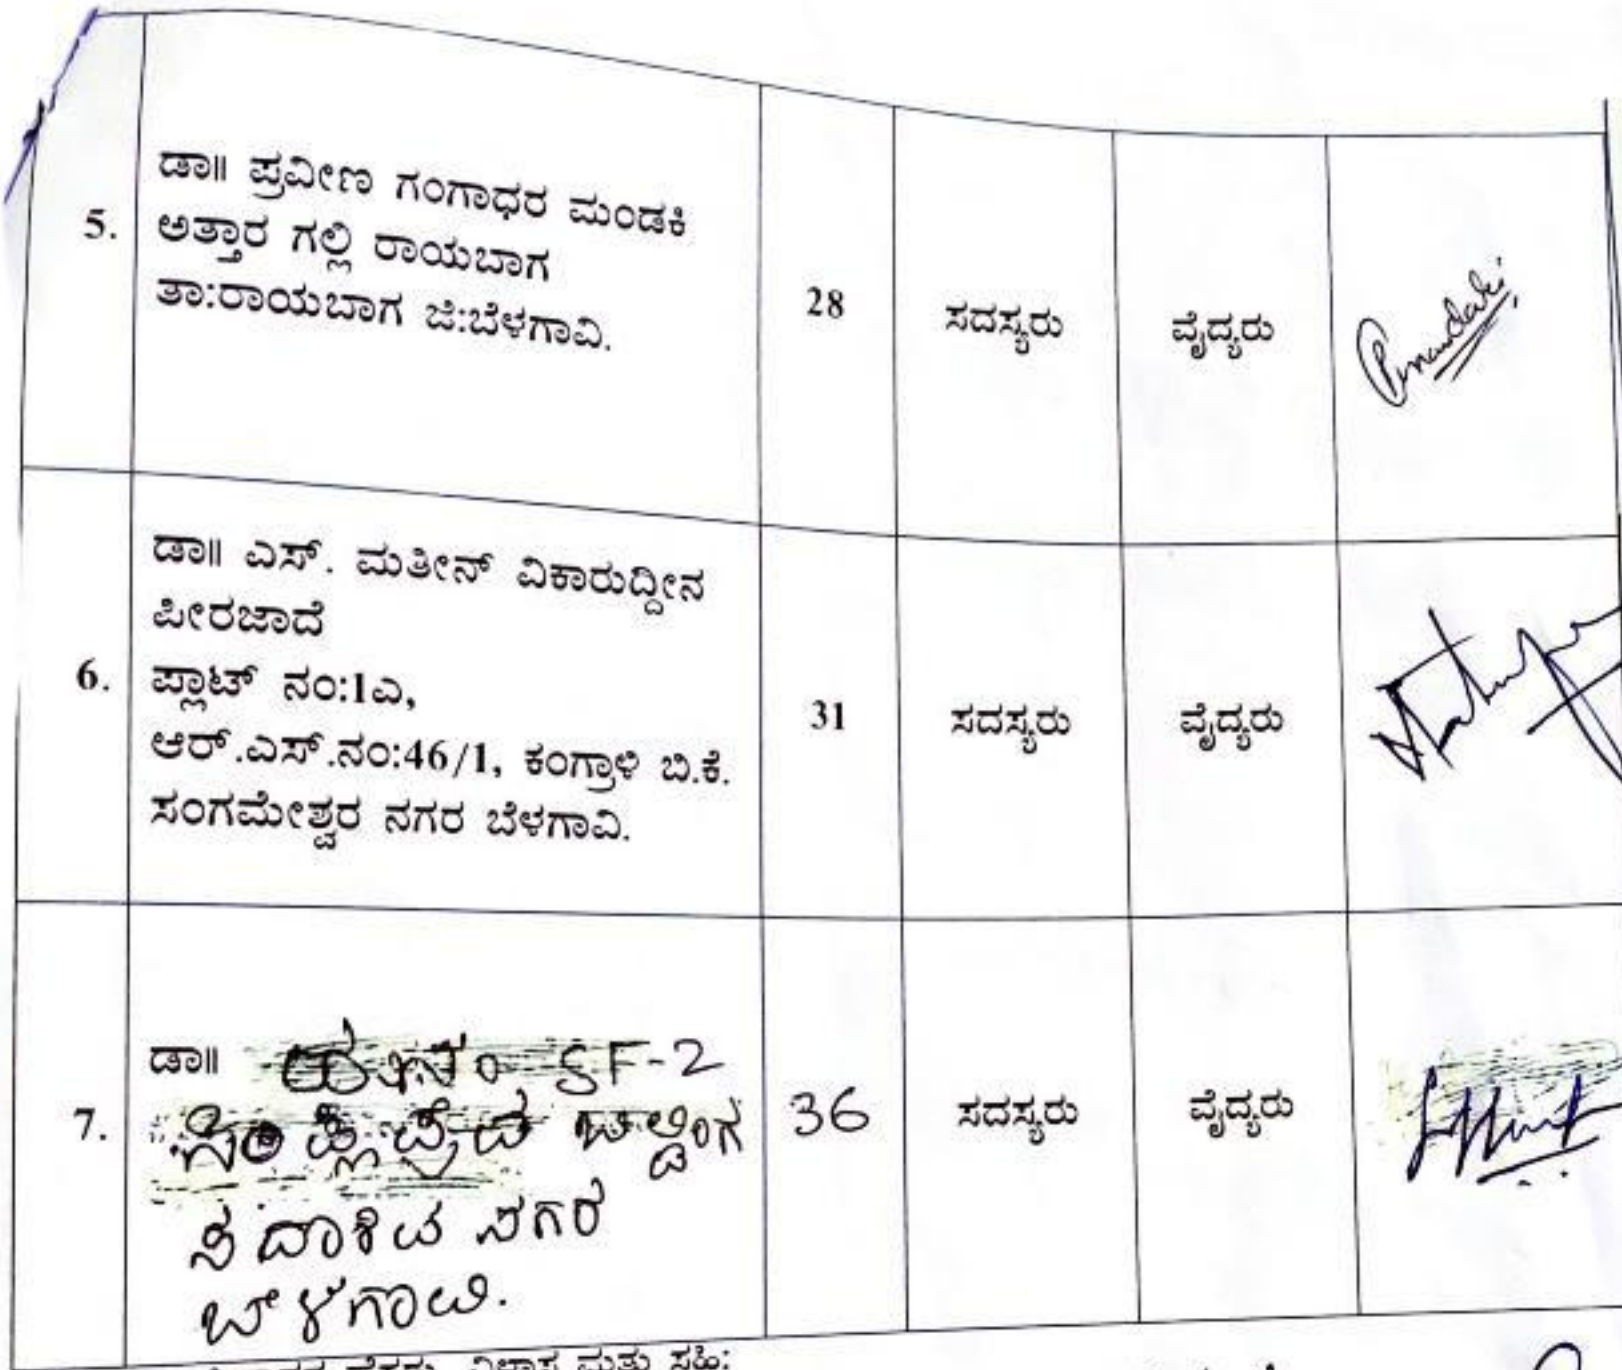 5.
ಡಾ॥ ಪ್ರವೀಣ ಗಂಗಾಧರ ಮಂಡಕಿ
ಅತ್ತಾರ ಗಲ್ಲಿ ರಾಯಬಾಗ
ತಾ:ರಾಯಬಾಗ ಜಿ:ಬೆಳಗಾವಿ.
28
ಸದಸ್ಯರು
ವೈದ್ಯರು
6.
ಡಾ॥ ಎಸ್. ಮತೀನ್ ವಿಕಾರುದ್ದೀನ
ಪೀರಜಾದೆ
ಪ್ಲಾಟ್ ನಂ:1ಎ,
ಆರ್.ಎಸ್.ನಂ:46/1, ಕಂಗ್ರಾಳಿ ಬಿ.ಕೆ.
ಸಂಗಮೇಶ್ವರ ನಗರ ಬೆಳಗಾವಿ.
31
ಸದಸ್ಯರು
ವೈದ್ಯರು
7.
ಡಾ॥ SF-2
ಬಿಲ್ಡಿಂಗ
ಸದಾಶಿವ ನಗರ
ಬೆಳಗಾವಿ.
36
ಸದಸ್ಯರು
ವೈದ್ಯರು
ವಿಳಾಸ ಮತ್ತು ಸಹಿ: